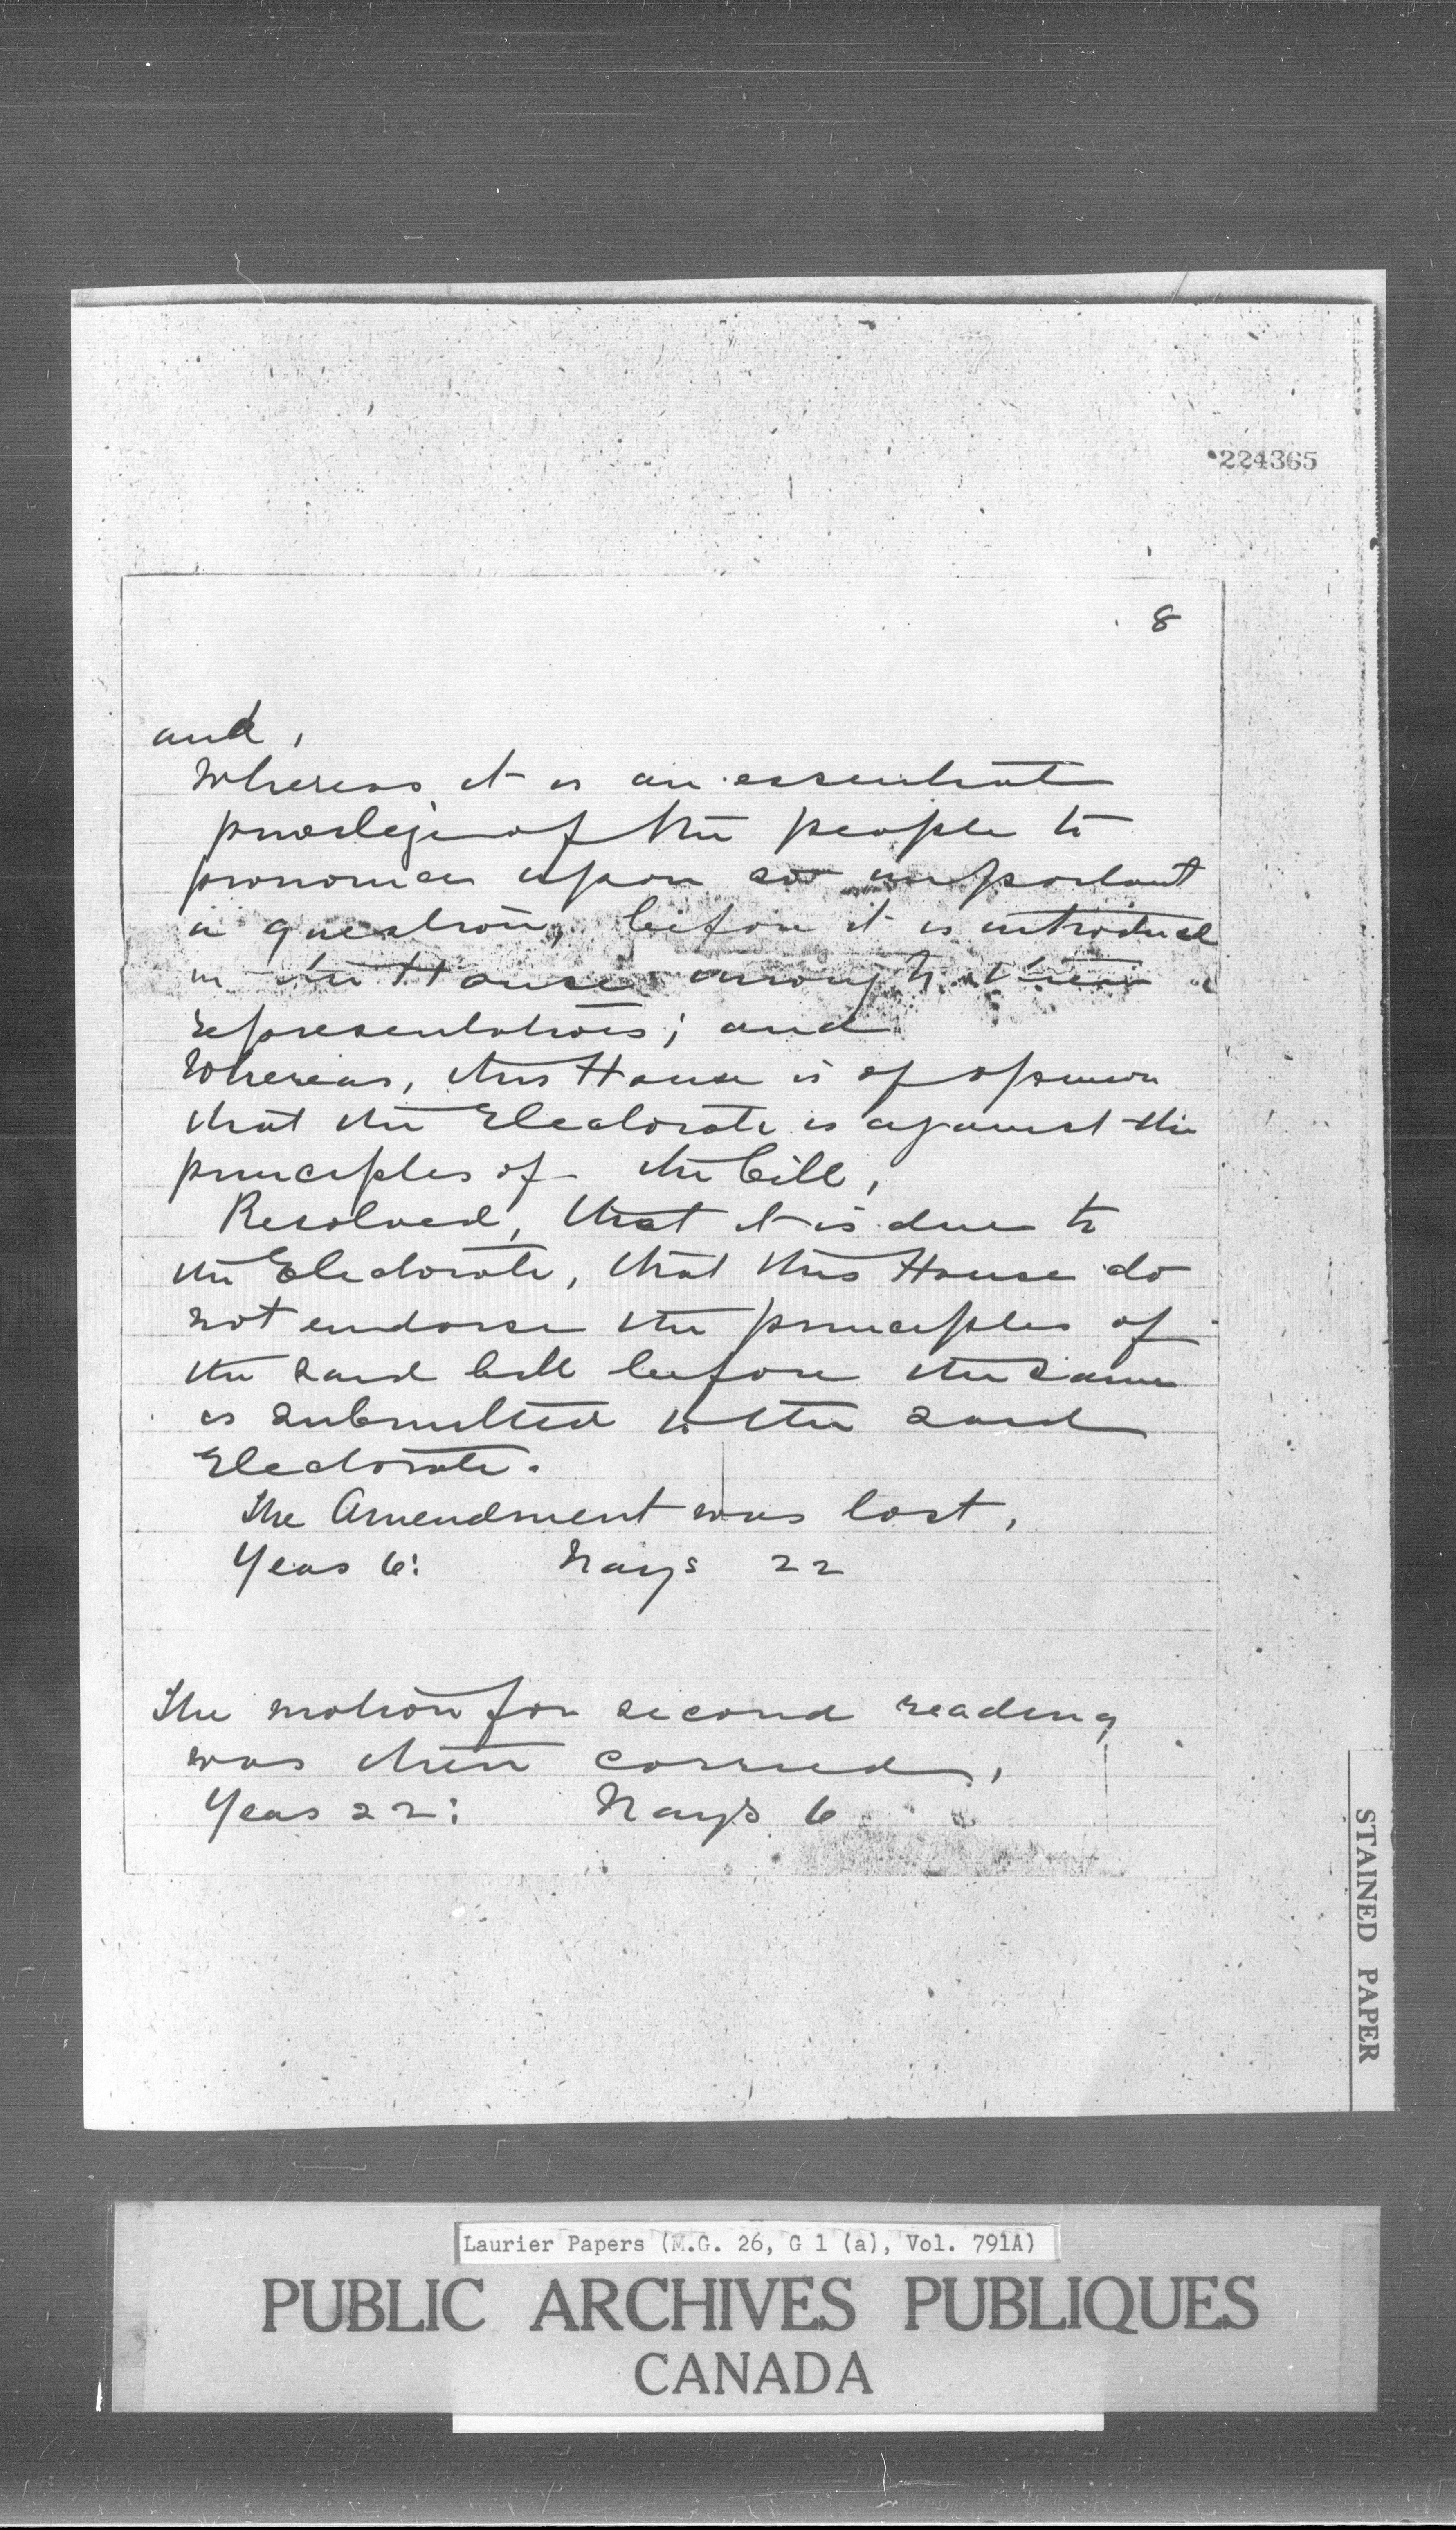 224365
8
and,
Whereas it is an essential
privilege of the people to
pronounce upon so important
a question, before it is introduced
in the House through their
representatives; and
Whereas, this House is of opinion
that the Electorate is against the
principles of the bill,
Resolved, that it is due to
the Electorate, that this House do
not endorse the principles of
the said bill before the same
is submitted to the said
Electorate.
The Amendment was lost,
Yeas 6: Nays 22
The motion for second reading
was then carried,
Yeas 22: Nays 6
STAINED PAPER
Laurier Papers (M.G. 26, G 1 (a), Vol. 791A)
PUBLIC ARCHIVES PUBLIQUES
CANADA